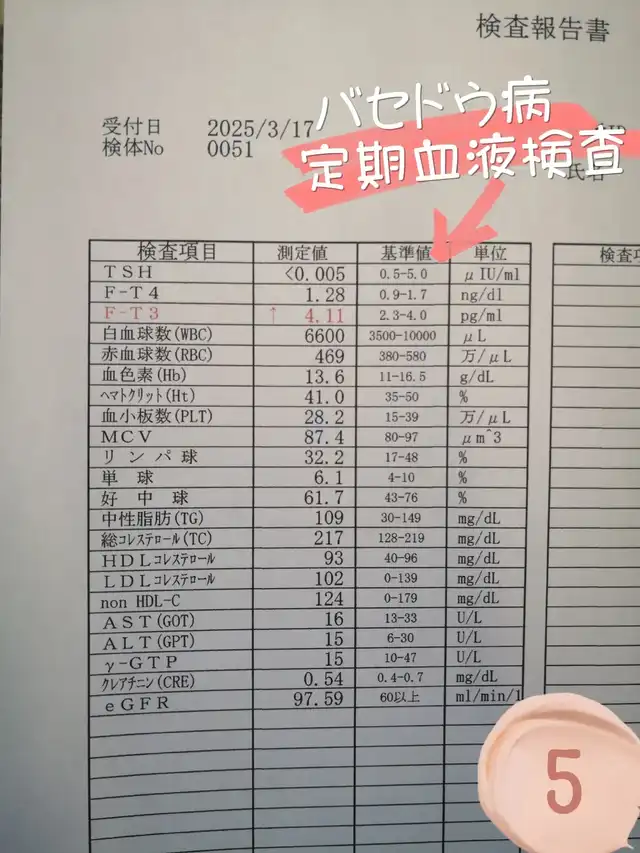 検査報告書
受付日 2025/3/17
検体No 0051
バセドウ病
定期血液検査
氏名
検査項目 測定値 基準値 単位
TSH <0.005 0.5-5.0 μIU/ml
F-T4 1.28 0.9-1.7 ng/dl
F-T3 ↑ 4.11 2.3-4.0 pg/ml
白血球数(WBC) 6600 3500-10000 μL
赤血球数(RBC) 469 380-580 万/μL
血色素(Hb) 13.6 11-16.5 g/dL
ヘマトクリット(Ht) 41.0 35-50 %
血小板数(PLT) 28.2 15-39 万/μL
MCV 87.4 80-97 μm^3
リンパ球 32.2 17-48 %
単球 6.1 4-10 %
好中球 61.7 43-76 %
中性脂肪(TG) 109 30-149 mg/dL
総コレステロール(TC) 217 128-219 mg/dL
HDLコレステロール 93 40-96 mg/dL
LDLコレステロール 102 0-139 mg/dL
non HDL-C 124 0-179 mg/dL
AST(GOT) 16 13-33 U/L
ALT(GPT) 15 6-30 U/L
γ-GTP 15 10-47 U/L
クレアチニン(CRE) 0.54 0.4-0.7 mg/dL
eGFR 97.59 60以上 ml/min/1
検査項
5